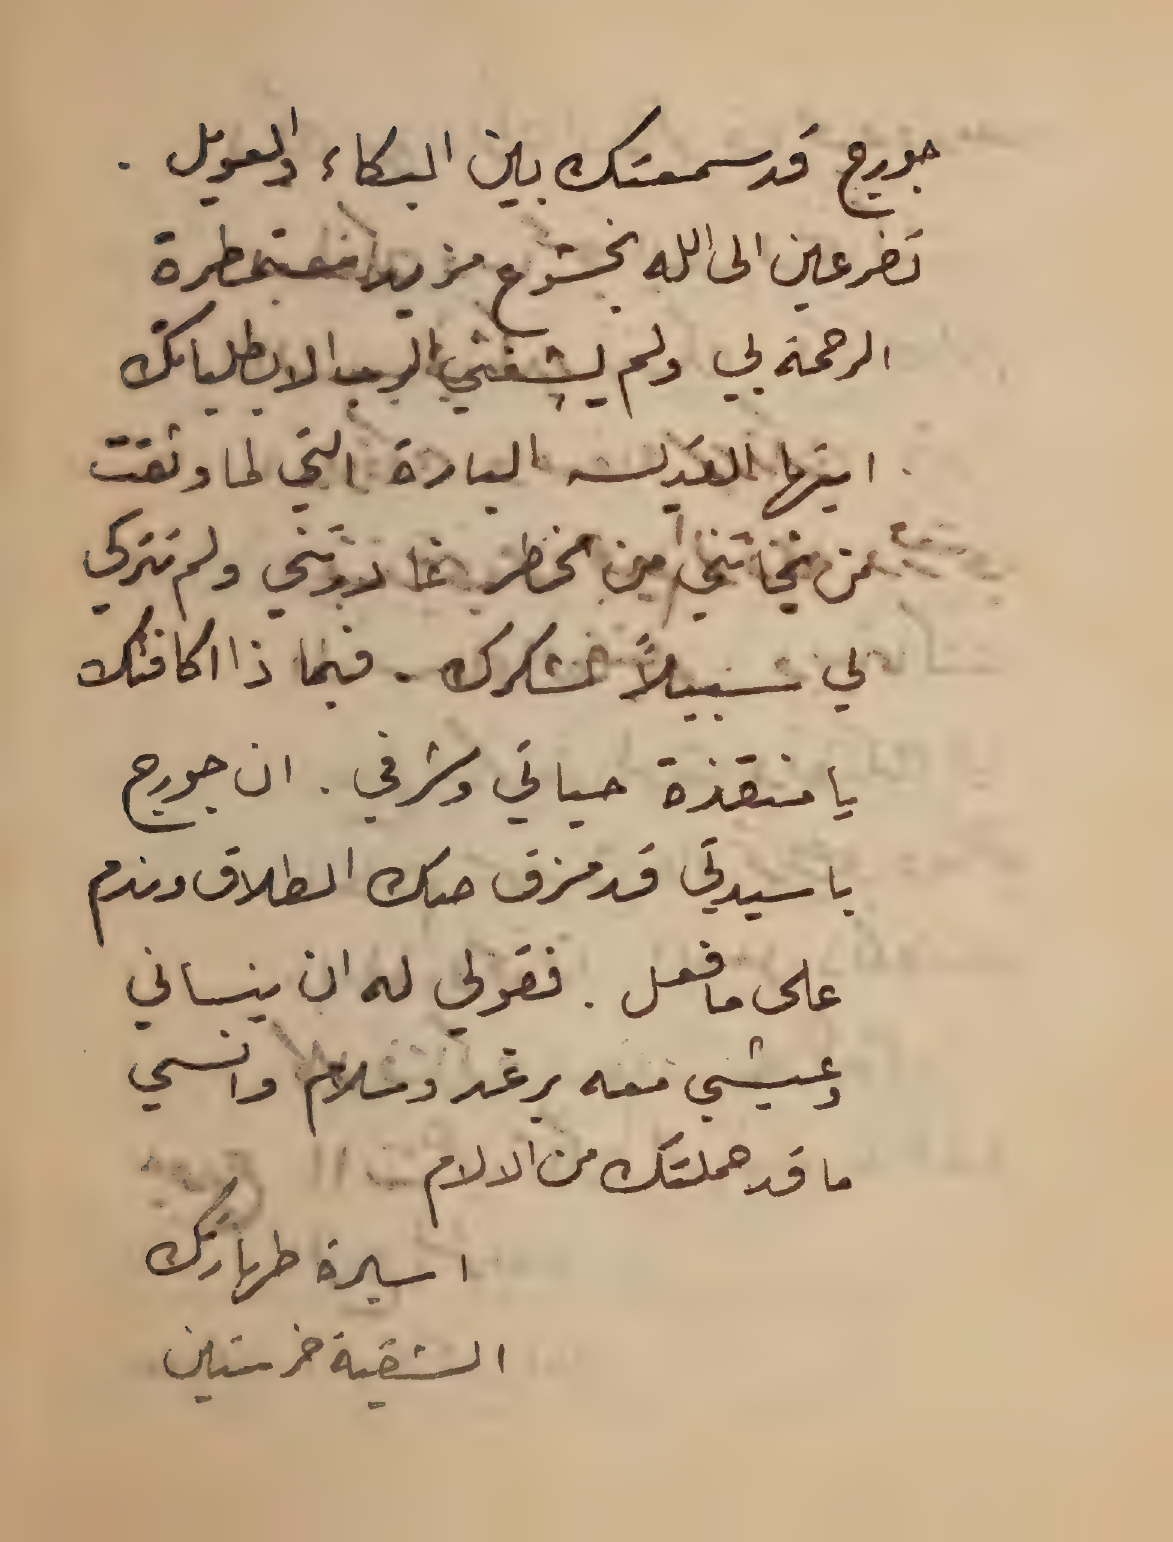 جورج قد سمعتك بين البكاء والعويل .
تضرعين الى الله بخشوع مزيد مستمطرة
الرحمة لي ولم يشفني الرب الا بطلباتك
ايتها القديسه البارة التي لما وثقت
من نجاتي من الخطر غادرتني ولم تتركي
لي سبيلاً لشكرك . فبماذا اكافئك
يا منقذة حياتي وشرفي . ان جورج
يا سيدتي قد مزق صك الطلاق وندم
على ما فعل . فقولي له ان ينساني
وعيشي معه برغد وسلام وانسي
ما قد حملتك من الالام
اسيرة طهارتك
الشقية خرستين